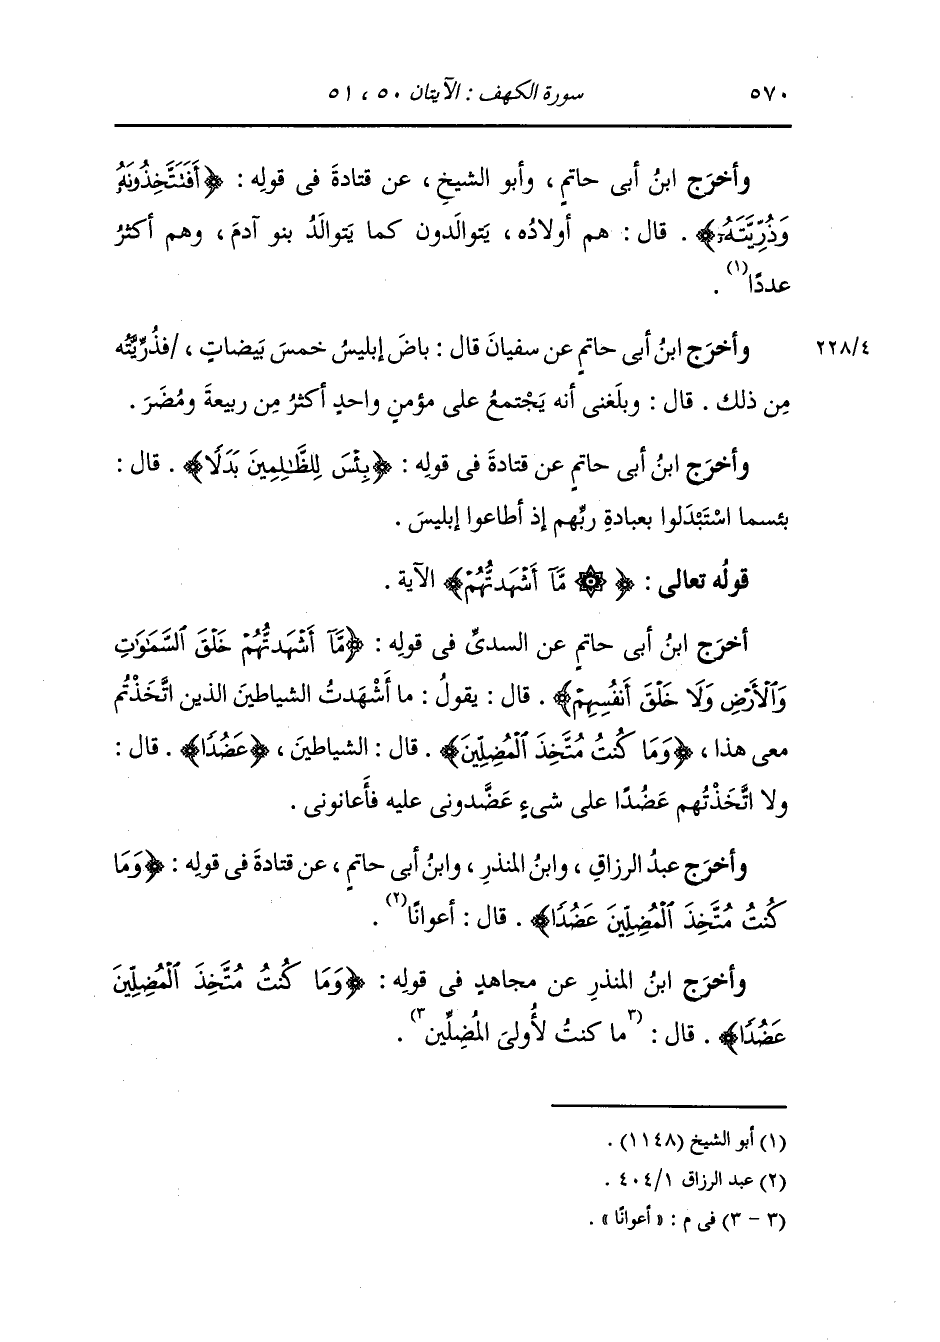 ٥٧٠ سورة الكهف : الآيتان ٥٠ ، ٥١
وأخرَج ابنُ أبى حاتمٍ ، وأبو الشيخِ ، عن قتادةَ فى قولِه : ﴿أَفَتَتَّخِذُونَهُۥ
وَذُرِّيَّتَهُۥٓ﴾ . قال : هم أولادُه ، يَتوالَدون كما يَتوالَدُ بنو آدمَ ، وهم أكثرُ
عددًا(١) .
وأخرَج ابنُ أبى حاتمٍ عن سفيانَ قال : باضَ إبليسُ خمسَ بَيضاتٍ ، /فذُرِّيَّتُه ٢٢٨/٤
مِن ذلك . قال : وبلَغنى أنه يَجْتمعُ على مؤمنٍ واحدٍ أكثرُ مِن ربيعةَ ومُضَرَ .
وأخرَج ابنُ أبى حاتمٍ عن قتادةَ فى قولِه : ﴿بِئْسَ لِلظَّٰلِمِينَ بَدَلًا﴾ . قال :
بئسما اسْتَبْدَلوا بعبادةِ ربِّهم إذ أطاعوا إبليسَ .
قولُه تعالى : ﴿ ۞ مَّآ أَشْهَدتُّهُمْ﴾ الآية .
أخرَج ابنُ أبى حاتمٍ عن السدىِّ فى قولِه : ﴿مَّآ أَشْهَدتُّهُمْ خَلْقَ ٱلسَّمَٰوَٰتِ
وَٱلْأَرْضِ وَلَا خَلْقَ أَنفُسِهِمْ﴾ . قال : يقولُ : ما أَشْهَدتُ الشياطينَ الذين اتَّخَذْتُم
معى هذا ، ﴿وَمَا كُنتُ مُتَّخِذَ ٱلْمُضِلِّينَ﴾ . قال : الشياطينَ ، ﴿عَضُدًا﴾ . قال :
ولا اتَّخَذْتُهم عَضُدًا على شىءٍ عَضَّدونى عليه فأَعانونى .
وأخرَج عبدُ الرزاقِ ، وابنُ المنذرِ ، وابنُ أبى حاتمٍ ، عن قتادةَ فى قولِه : ﴿وَمَا
كُنتُ مُتَّخِذَ ٱلْمُضِلِّينَ عَضُدًا﴾ . قال : أعوانًا(٢) .
وأخرَج ابنُ المنذرِ عن مجاهدٍ فى قولِه : ﴿وَمَا كُنتُ مُتَّخِذَ ٱلْمُضِلِّينَ
عَضُدًا﴾ . قال : (٣ما كنتُ لأُولىَ المُضِلِّين٣) .
(١) أبو الشيخ (١١٤٨) .
(٢) عبد الرزاق ٤٠٤/١ .
(٣ - ٣) فى م : « أعوانًا » .